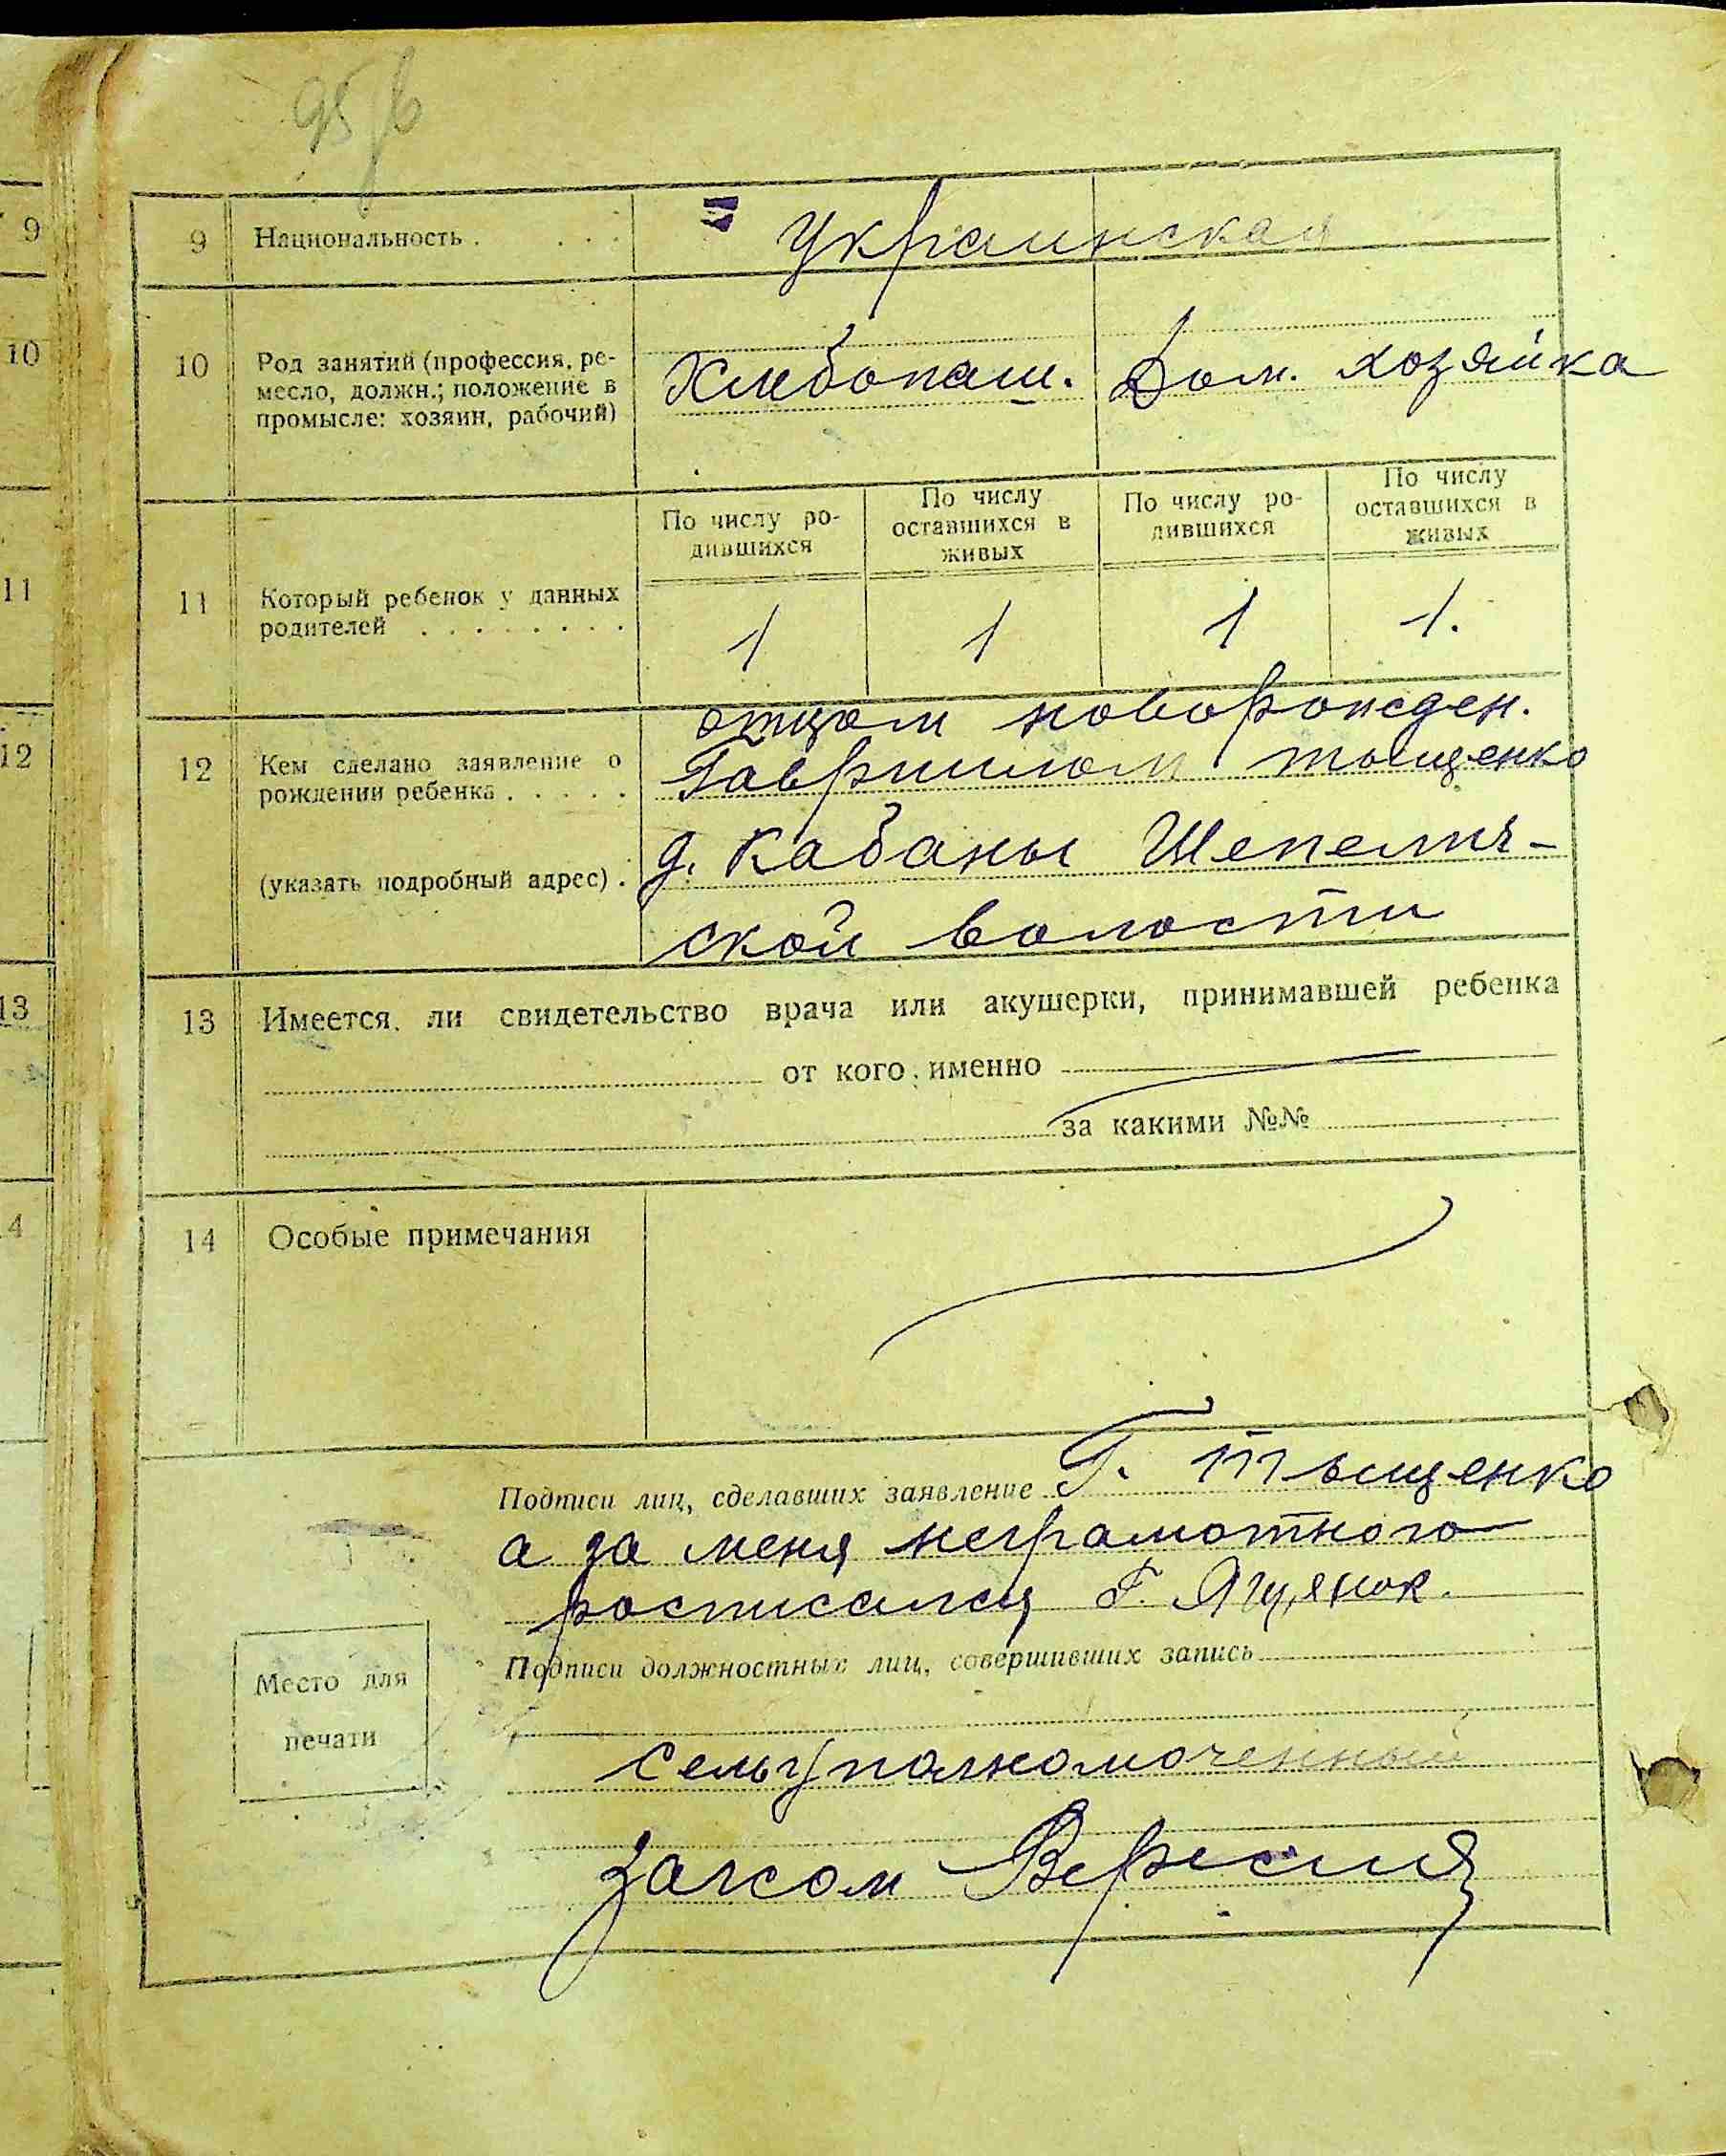 9 Национальность . . . . Украинская
10 Род занятий (профессия, ре-
месло, должн.; положение в
промысле: хозяин, рабочий)
Хлебопаш. Дом. хозяйка
По числу ро-
дившихся
По числу
оставшихся в
живых
По числу ро-
дившихся
По числу
оставшихся в
живых
11 Который ребенок у данных
родителей . . . . . . . .
1 1 1 1.
12 Кем сделано заявление о
рождении ребенка . . . . .
(указать подробный адрес) .
отцом новорожден.
Гавриилом Тыщенко
д. Кабаны Шепелич-
ской волости
13 Имеется ли свидетельство врача или акушерки, принимавшей ребенка
от кого именно
за какими №№
14 Особые примечания
Подписи лиц, сделавших заявление Г. Тыщенко
а за меня неграмотного
росписался Г. Ягцянок.
Подписи должностных лиц, совершивших запись
Место для
печати
сельуполномоченный
загсом
9
10
11
12
13
4